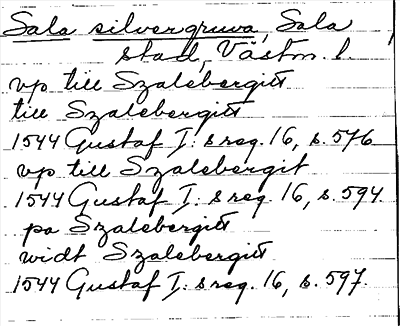 Sala silvergruva, Sala
stad, Västm. l.
vp till Szalebergitt
till Szalebergitt
1544 Gustaf I: s reg. 16, s. 576
vp till Szalebergit
1544 Gustaf I: s reg. 16, s. 594.
pa Szalebergitt
widt Szalebergitt
1544 Gustaf I: s reg. 16, s. 597.